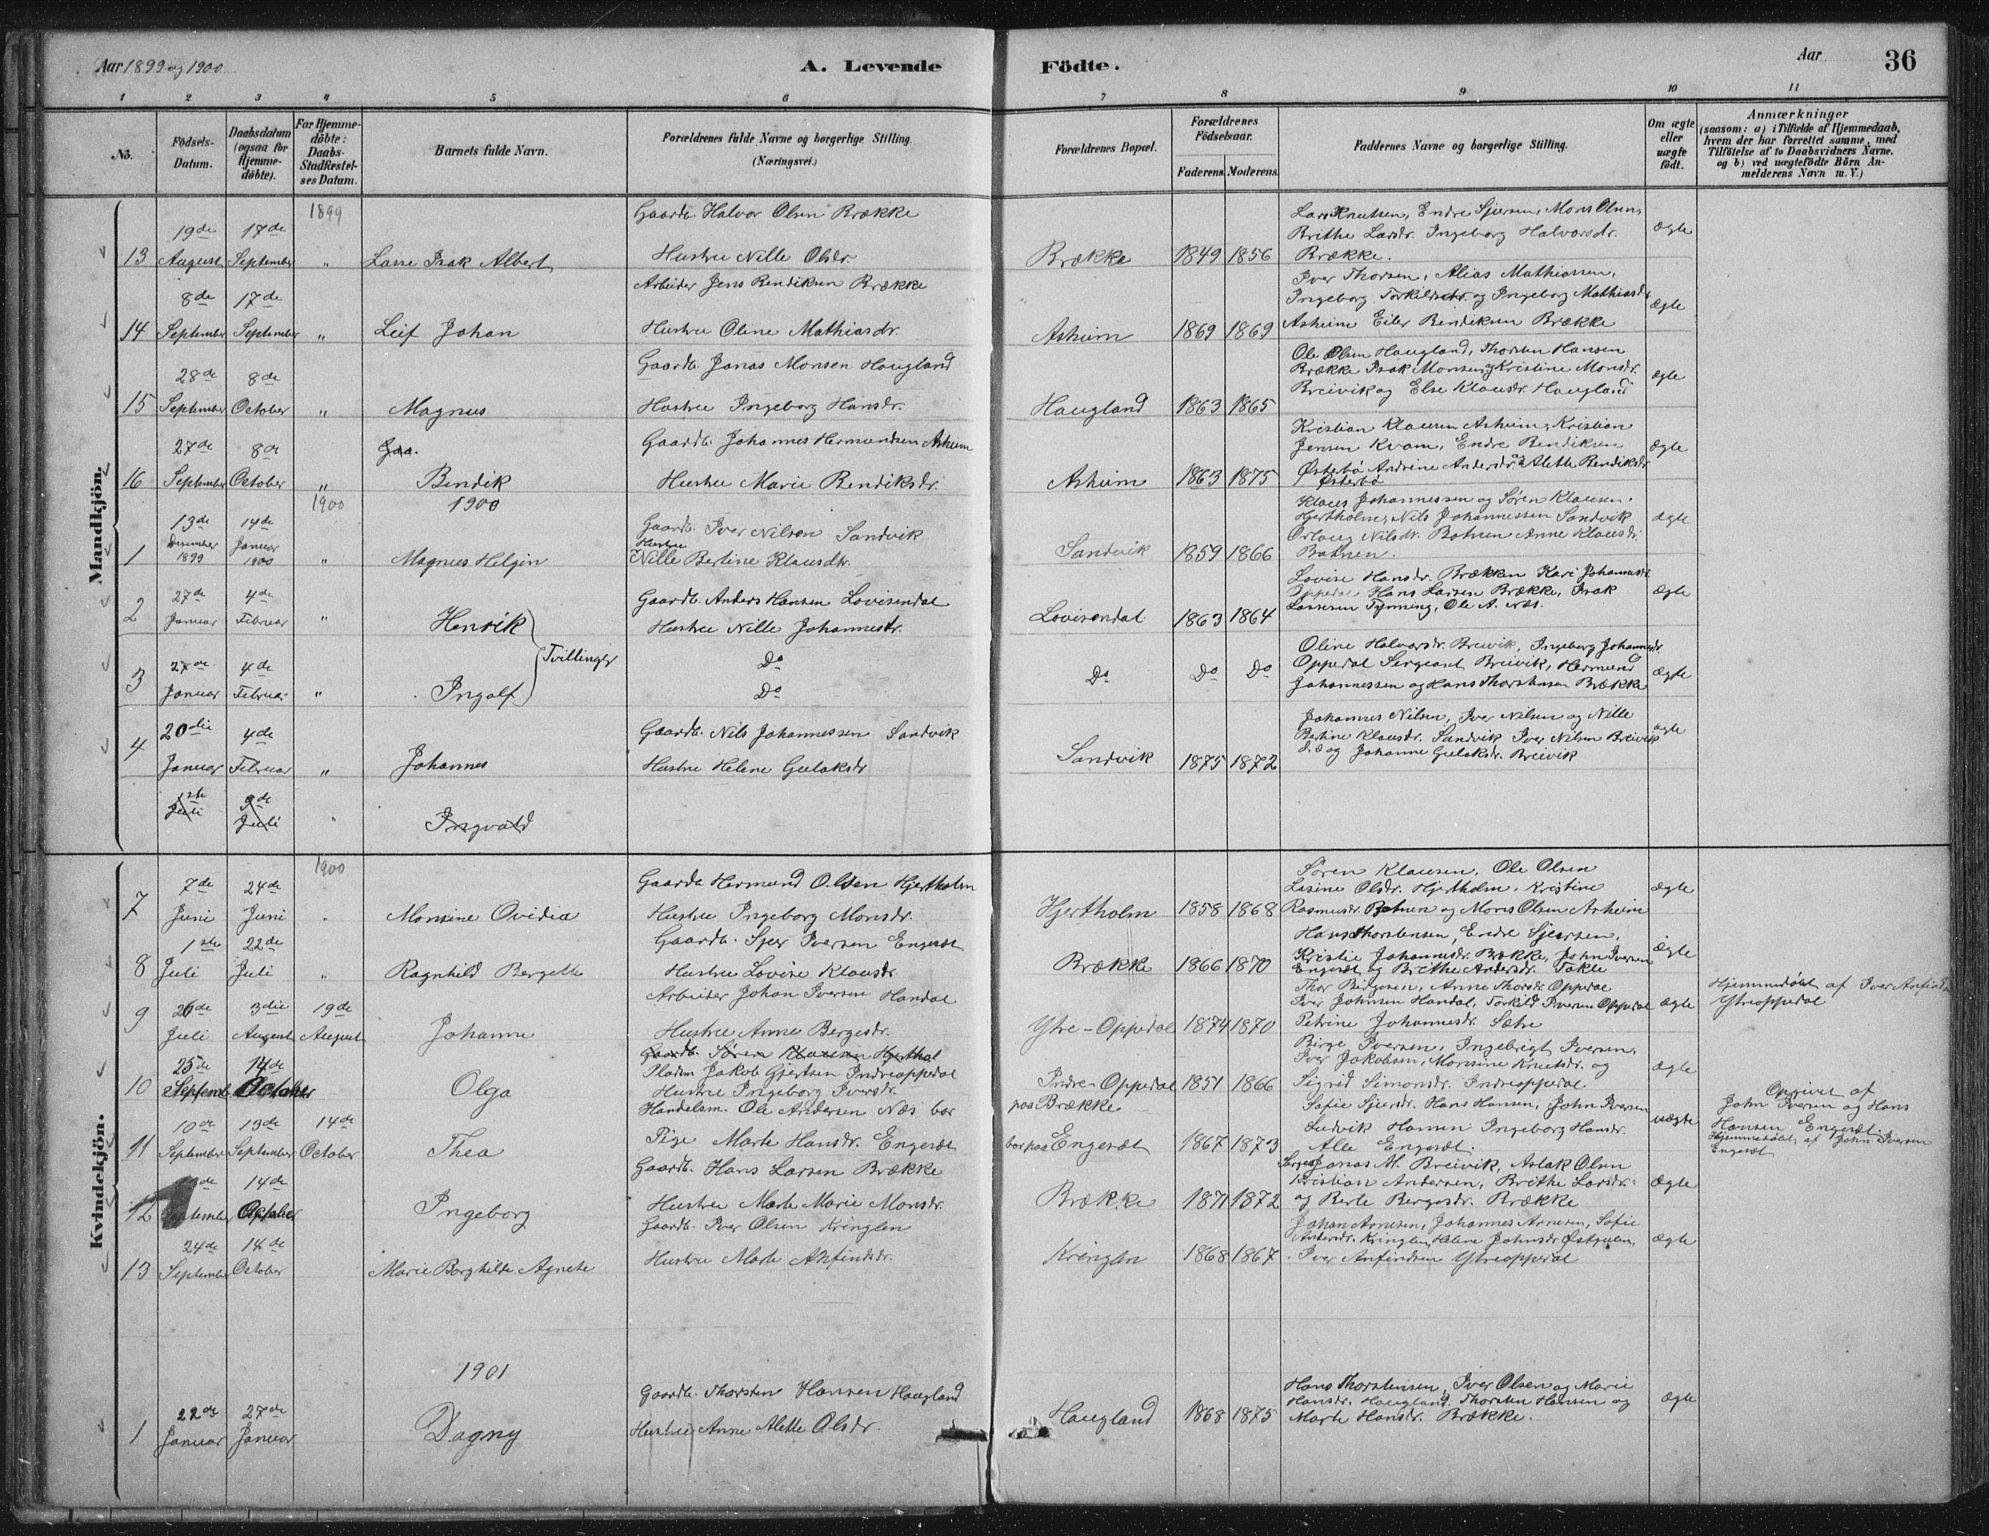 Aar 1899 og 1900
A. Levende
Födte.
Aar
36
1 2 3 4 5 6 7 8 9 10 11
No.
Födsels-Datum.
Daabsdatum (ogsaa for Hjemme-döbte).
For Hjemme-döbte: Daabs-Stadfæstel-ses Datum.
Barnets fulde Navn.
Forældrenes fulde Navne og borgerlige Stilling. (Næringsvei.)
Forældrenes Bopæl.
Forældrenes Födselsaar.
Faderens. Moderens.
Faddernes Navne og borgerlige Stilling.
Om ægte eller uægte födt.
Anmærkninger
(saasom: a) i Tilfælde af Hjemmedaab, hvem der har forrettet samme, med Tilföielse af to Daabsvidners Navne. og b) ved uægtefödte Börn An-melderens Navn m. V.)
Mandkjön.
1899
13 19de August 17de September " Lasse Isak Albert
Gaardb. Halvor Olsen Brække
Hustru Nille Olsdr.
Brække 1849 1856
Lars Knutsen, Endre Sjursen, Mons Olsen,
Brithe Larsdr. Ingeborg Halvorsdr.
Brække.
ægte
14 8de September 17de September " Leif Johan
Arbeider Jens Bendiksen Brække
Hustru Oline Mathiasdr.
Asheim 1869 1869
Iver Thorsen, Alias Mathiassen,
Ingeborg Torkildsdr. og Ingeborg Mathiasdr.
Asheim Eiler Bendiksen Brække
ægte
15 28de September 8de October " Magnus
Gaardb. Jonas Monsen Haugland
Hustru Ingeborg Hansdr.
Haugland 1863 1865
Ole Olsen Haugland, Thorsten Hansen
Brække Isak Monsen og Kristine Monsdr.
Breivik og Else Klausdr. Haugland
ægte
16 27de September 8de October " Gaa. Bendik
Gaardb. Johannes Hermundsen Asheim
Hustru Marie Bendiksdr.
Asheim 1863 1875
Kristian Klausen Asheim, Kristian
Jensen Kvam, Endre Bendiksen
Østerbø Andrine Andersdr. og Alette Bendiksdr.
Østerbø
ægte
1900
1900
1 13de December 1899 14de Januar 1900 " Magnus Helgin
Gaardb. Iver Nilsen Sandvik
Hustru
Nille Bertine Klausdtr.
Sandvik 1859 1866
Klaus Johannessen og Søren Klausen
Hjertholm, Nils Johannessen Sandvik
Orlaug Nilsdr. Botnen Anne Klausdr.
Botnen.
ægte
2 27de Januar 4de Februar " Henrik
Gaardb. Anders Hansen Lovisendal
Hustru Nille Johannesdr.
Lovisendal 1863 1864
Lovise Hansdr. Brækken Kari Johannesdr.
Oppedal Hans Larsen Brække, Isak
Lassesen Tynning, Ole A. Næs.
ægte
Tvillinger
3 27de Januar 4de Februar " Ingolf
Do
Do
Do Do Do
Oline Halvorsdr. Breivik, Ingeborg Johannesdr.
Oppedal Sergeant Breivik, Hermund
Johannessen og Hans Thorstensen Brække
ægte
4 20die Januar 4de Februar " Johannes
Gaardb. Nils Johannessen Sandvik
Hustru Helene Gulaksdr.
Sandvik 1875 1872
Johannes Nilsen, Iver Nilsen og Nille
Bertine Klausdr. Sandvik Iver Nilsen Breivik
og Johanne Gulaksdr. Breivik
ægte
1ste Juli 9de Juli " Ingvald
Kvindekjön.
1900
7 7de Juni 24de Juni " Monsine Ovidia
Gaardb. Hermund Olsen Hjertholm
Hustru Ingeborg Monsdr.
Hjertholm 1858 1868
Søren Klausen, Ole Olsen
Lasine Olsdr. Hjertholm, Kristine
Rasmusdr. Botnen og Mons Olsen Asheim
ægte
8 1ste Juli 22de Juli " Ragnhild Bergette
Gaardb. Sjur Iversen Engesæt
Hustru Lovise Klausdr.
Brække 1866 1870
Hans Thorstensen, Endre Sjursen,
Kristie Johannesdr. Brække, John Iversen
Engesæt og Brithe Andersdr. Takle
ægte
9 26de Juli 3die August 19de August Johanne
Arbeider Johan Iversen Handal
Hustru Anne Bergesdr.
Ytre-Oppedal 1874 1870
Thor Birgesen, Anne Thorsdr. Oppedal
Iver Johnsen Handal, Torkild Iversen Oppedal
Petrine Johannesdr. Sætre
ægte
Hjemmedøbt af Iver Anfindsen
Ytreoppedal
10 25de September 14de October Olga
Gaardb. Søren Klausen Hjerthol
Pladsm. Jakob Gjertsen Indreoppedal
Hustru Ingeborg Iversdr.
Indre-Oppedal 1851 1866
Birge Iversen, Ingebrigt Iversen,
Iver Jakobsen, Monsine Knutsdr. og
Sigrid Simonsdr. Indreoppedal
ægte
11 10de September 19de September 14de October Thea
Handelsm. Ole Andersen Næs bor
Pige Marte Hansdr. Engesæt
paa Brække
bor paa Engesæt 1867 1873
Sofie Sjursdr. Hans Hansen, John Iversen
Ludvik Hansen Ingeborg Hansdr.
Alle Engesæt.
uægte
Opgivet af
John Iversen og Hans
Hansen Engesæt.
Hjemmedøbt af John Iversen
Engesæt
12 September 14de October Ingeborg
Gaardb. Hans Larsen Brække
Hustru Marte Marie Monsdr.
Brække 1871 1872
Serg. Jonas M. Breivik, Aslak Olsen
Kristian Andersen, Brithe Larsdr.
og Berte Bergesdr. Brække
ægte
13 24de September 14de October Marie Borghilde Agnete
Gaardb. Iver Olsen Kringlen
Hustru Marte Anfindsdr.
Kringlen 1868 1867
Johan Arnesen, Johannes Arnesen, Sofie
Andersdr. Kringlen, Helene Johnsdr. Østgulen,
Iver Anfindsen Ytreoppedal
ægte
1901
1 22de Januar 27de Januar Dagny
Gaardb. Thorsten Hansen Haugland
Hustru Anne Alette Olsdr.
Haugland 1868 1875
Hans Thorstensen, Iver Olsen og Marie
Hansdr. Haugland Thorsten Hansen og
Marte Hansdr. Brække.
ægte